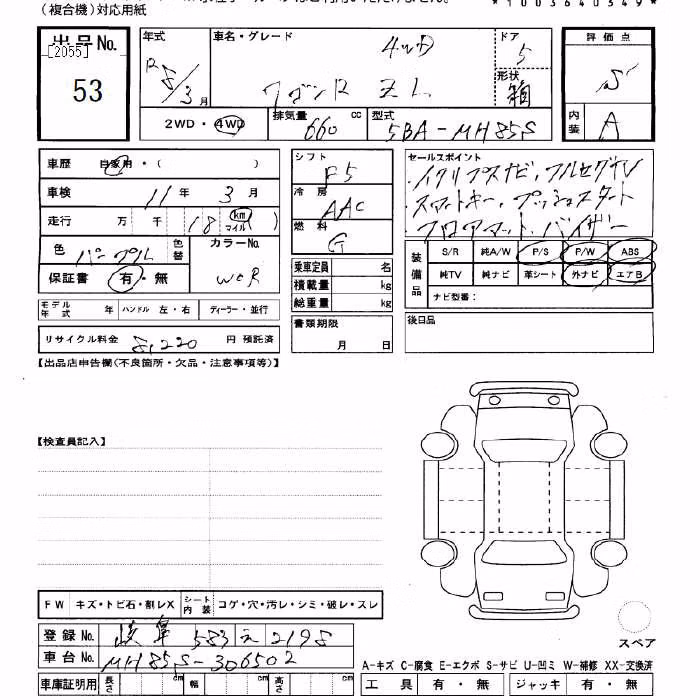 (複合機)対応用紙
*1003640349*
出品No.
[2055]
53
年式
R 8/3 月
車名・グレード
4WD
ワゴンR ZL
ドア
5
形状
箱
評価点
S
内装
A
2WD・4WD
排気量
660 cc
型式
5BA-MH85S
車歴 自家用・( )
車検 11年 3月
走行 万 千 18 (km マイル)
色 パープル
色替
カラーNo.
WCR
保証書 有・無
モデル年式
ハンドル 左・右
ディーラー・並行
リサイクル料金 8,220 円 預託済
シフト
F5
冷房
AAC
燃料
G
乗車定員 名
積載量 kg
総重量 kg
書類期限
月 日
セールスポイント
・イクリプスナビ,フルセグTV
・スマートキー,プッシュスタート
・フロアマット,バイザー
装備品
S/R 純A/W P/S P/W ABS
純TV 純ナビ 革シート 外ナビ エアB
ナビ型番:
後日品
【出品店申告欄(不良箇所・欠品・注意事項等)】
【検査員記入】
FW キズ・トビ石・割レX
シート内装 コゲ・穴・汚レ・シミ・破レ・スレ
登録No. 岐阜 583 え 2198
車台No. MH85S-306502
車庫証明用 長さ cm 幅 cm 高さ cm
スペア
A-キズ C-腐食 E-エクボ S-サビ U-凹ミ W-補修 XX-交換済
工具 有・無 ジャッキ 有・無